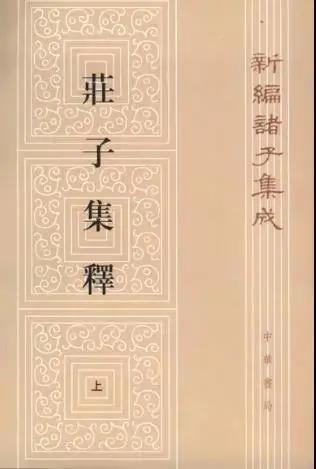 新編諸子集成
莊子集釋
上
中華書局